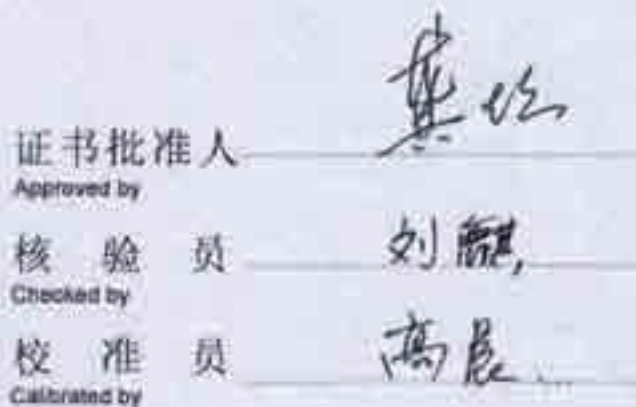 证书批准人
Approved by
核 验 员 刘麒
Checked by
校 准 员 高晨
Calibrated by